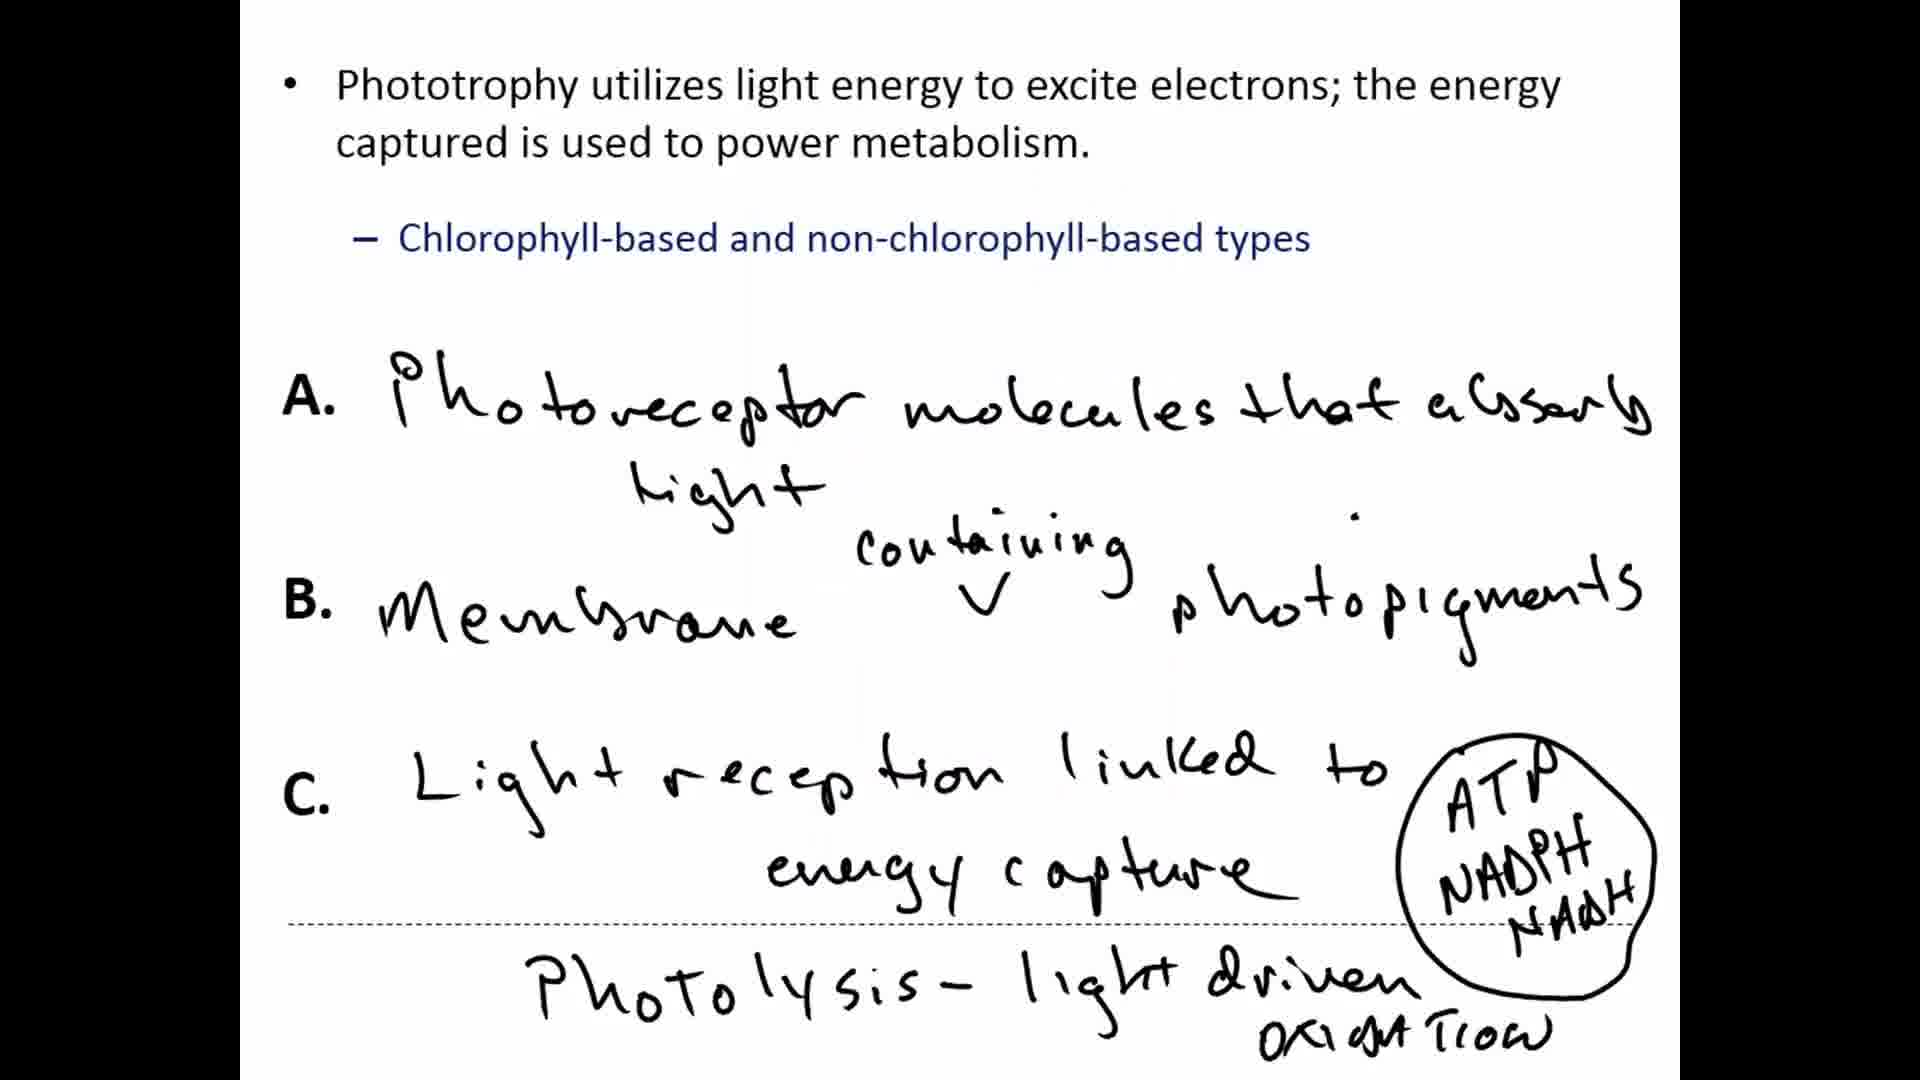 • Phototrophy utilizes light energy to excite electrons; the energy
captured is used to power metabolism.
– Chlorophyll-based and non-chlorophyll-based types
A. Photoreceptor molecules that absorb
light
containing
B. Membrane photopigments
C. Light reception linked to
energy capture
ATP
NADPH
NADH
Photolysis - light driven
OXIDATION